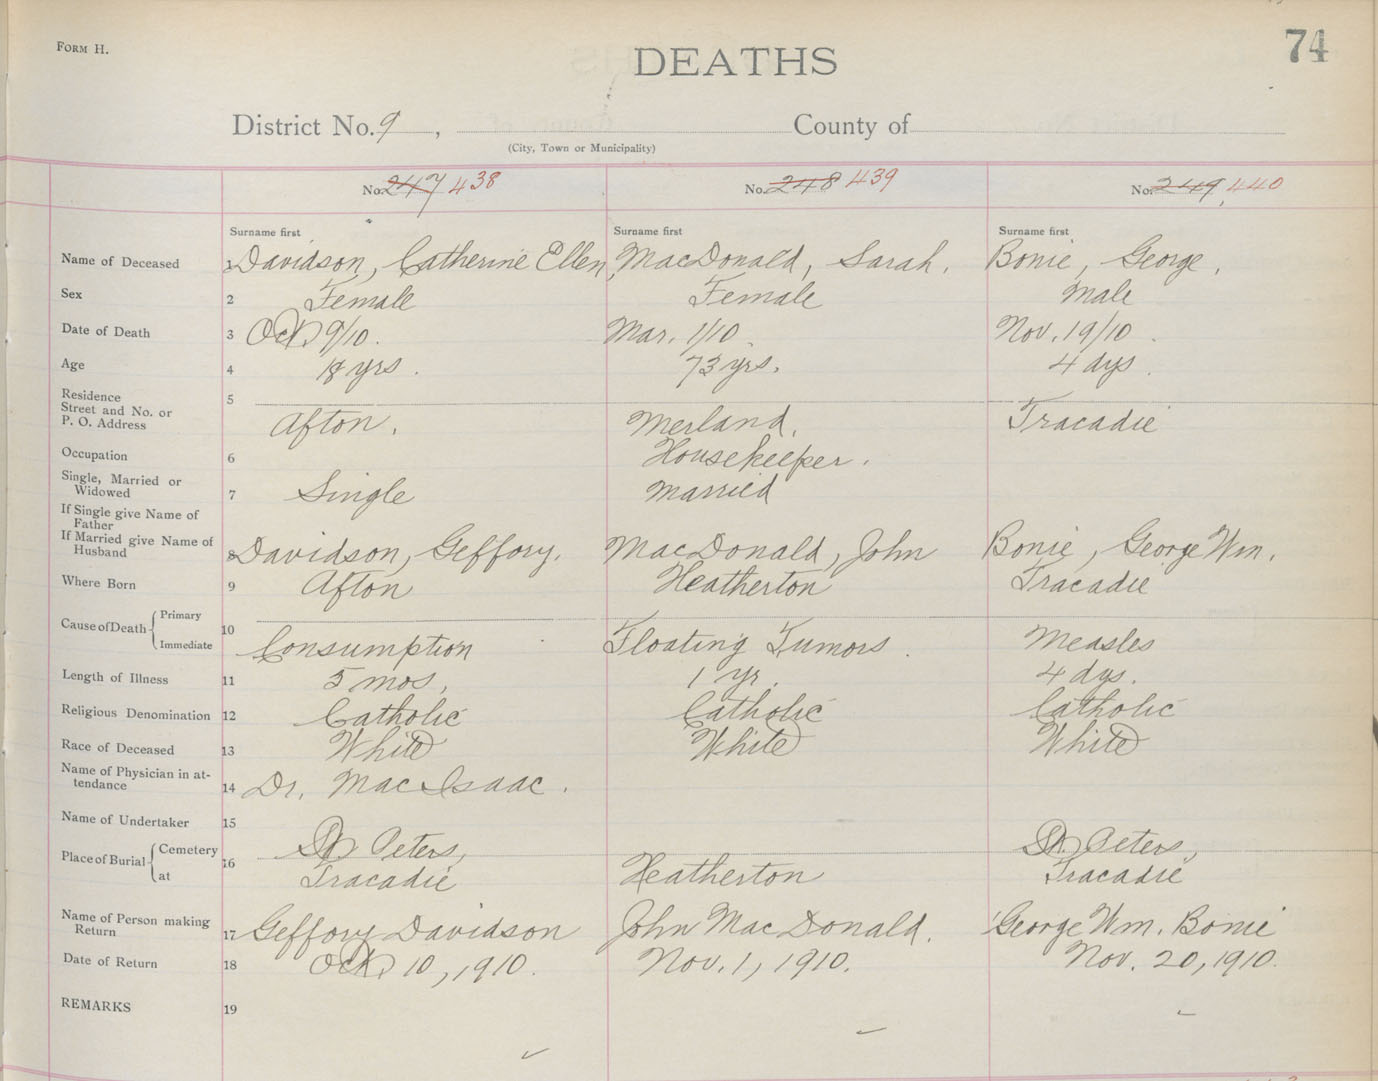 FORM H.
DEATHS
74
District No. 9, County of
(City, Town or Municipality)
No. 247 438 No. 248 439 No. 249 440
Surname first Surname first Surname first
Name of Deceased 1 Davidson, Catherine Ellen MacDonald, Sarah. Bonie, George.
Sex 2 Female Female Male
Date of Death 3 Oct 9/10. Mar. 1/10 Nov. 19/10.
Age 4 18 yrs. 73 yrs. 4 dys.
Residence
Street and No. or
P. O. Address 5 Afton. Merland. Tracadie
Occupation 6 Housekeeper.
Single, Married or
Widowed 7 Single Married
If Single give Name of
Father
If Married give Name of
Husband 8 Davidson, Geffory. MacDonald, John Bonie, George Wm.
Where Born 9 Afton Heatherton Tracadie
Cause of Death { Primary
Immediate 10 Consumption Floating Tumors. Measles
Length of Illness 11 5 mos, 1 yr. 4 dys.
Religious Denomination 12 Catholic Catholic Catholic
Race of Deceased 13 White White White
Name of Physician in at-
tendance 14 Dr. MacIsaac.
Name of Undertaker 15
Place of Burial { Cemetery St. Peters, St. Peters,
at 16 Tracadie Heatherton Tracadie
Name of Person making
Return 17 Geffory Davidson John MacDonald. George Wm. Bonie
Date of Return 18 Oct 10, 1910. Nov. 1, 1910. Nov. 20, 1910.
REMARKS 19